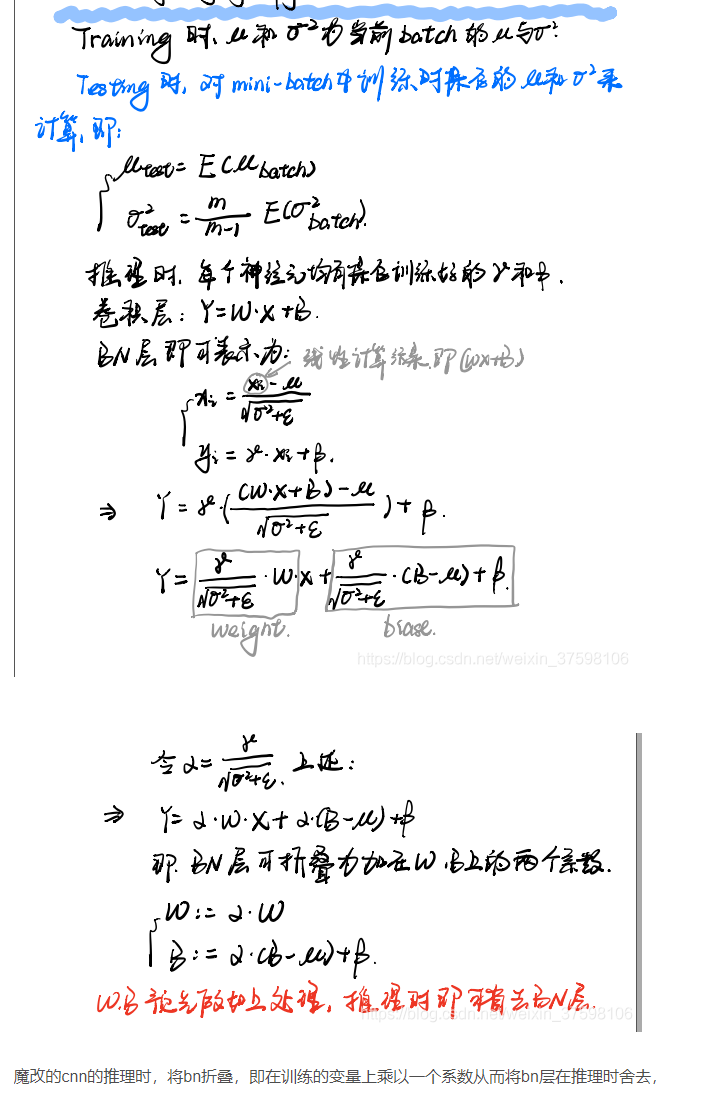 Training 时, μ 和 σ² 为当前 batch 的 μ 与 σ².
Testing 时, 对 mini-batch 中训练时保存的 μ 和 σ² 来
计算, 即:
μtest = E(μbatch)
σ²test = m/(m-1) E(σ²batch).
推理时, 每个神经元均有保存训练好的 γ 和 β.
卷积层: Y=W·X+B.
BN层即可表示为: 线性计算结果.即(WX+B)
xi = (xi-μ)/√(σ²+ε)
yi = γ·xi+β.
⇒ Y = γ·( ((W·X+B)-μ)/√(σ²+ε) )+β.
Y = γ/√(σ²+ε) ·W·X+ γ/√(σ²+ε) ·(B-μ)+β.
weight. biase.
https://blog.csdn.net/weixin_37598106
令 α = γ/√(σ²+ε). 上述:
⇒ Y= α·W·X+α·(B-μ)+β
即. BN层可折叠为加在W.B上的两个系数.
W := α·W
B := α·(B-μ)+β.
W.B预先做如上处理, 推理时即可省去BN层.
https://blog.csdn.net/weixin_37598106
魔改的cnn的推理时，将bn折叠，即在训练的变量上乘以一个系数从而将bn层在推理时舍去，